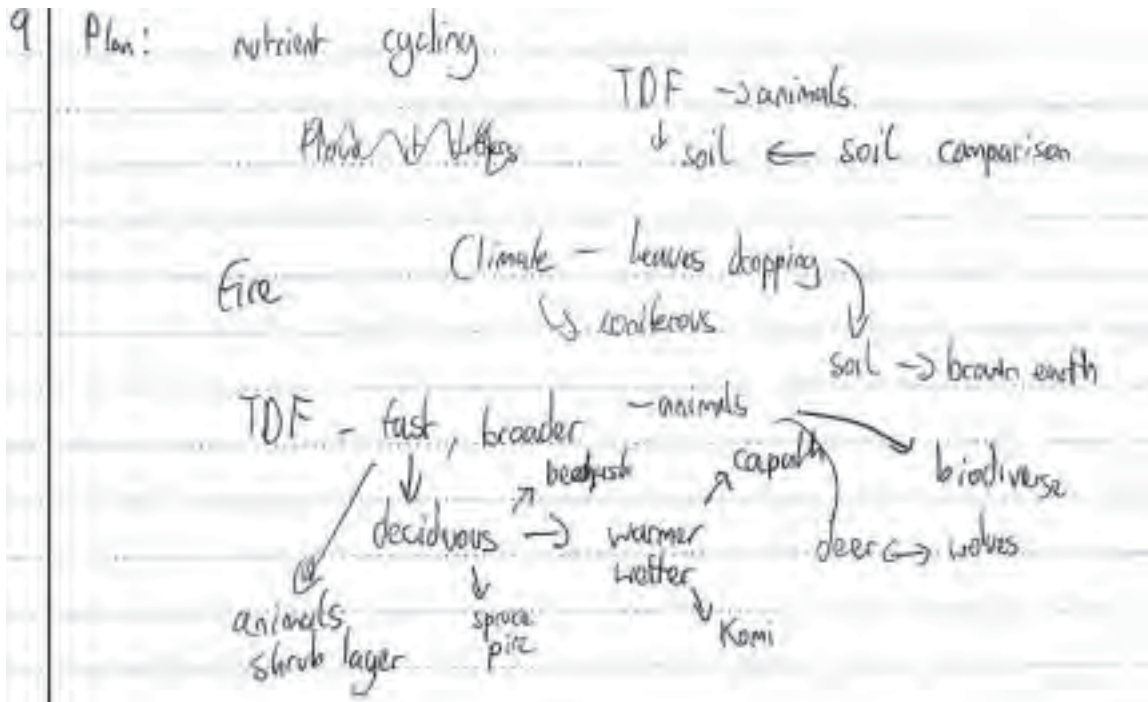 9 Plan: nutrient cycling
TDF → animals.
↓ soil ← soil comparison
Fire
Climate - leaves dropping
↳ coniferous
soil → brown earth
TDF - fast, broader - animals
biodiverse
deciduous → warmer
wetter
deer ↔ wolves
animals
shrub layer
spruce
pine
Komi